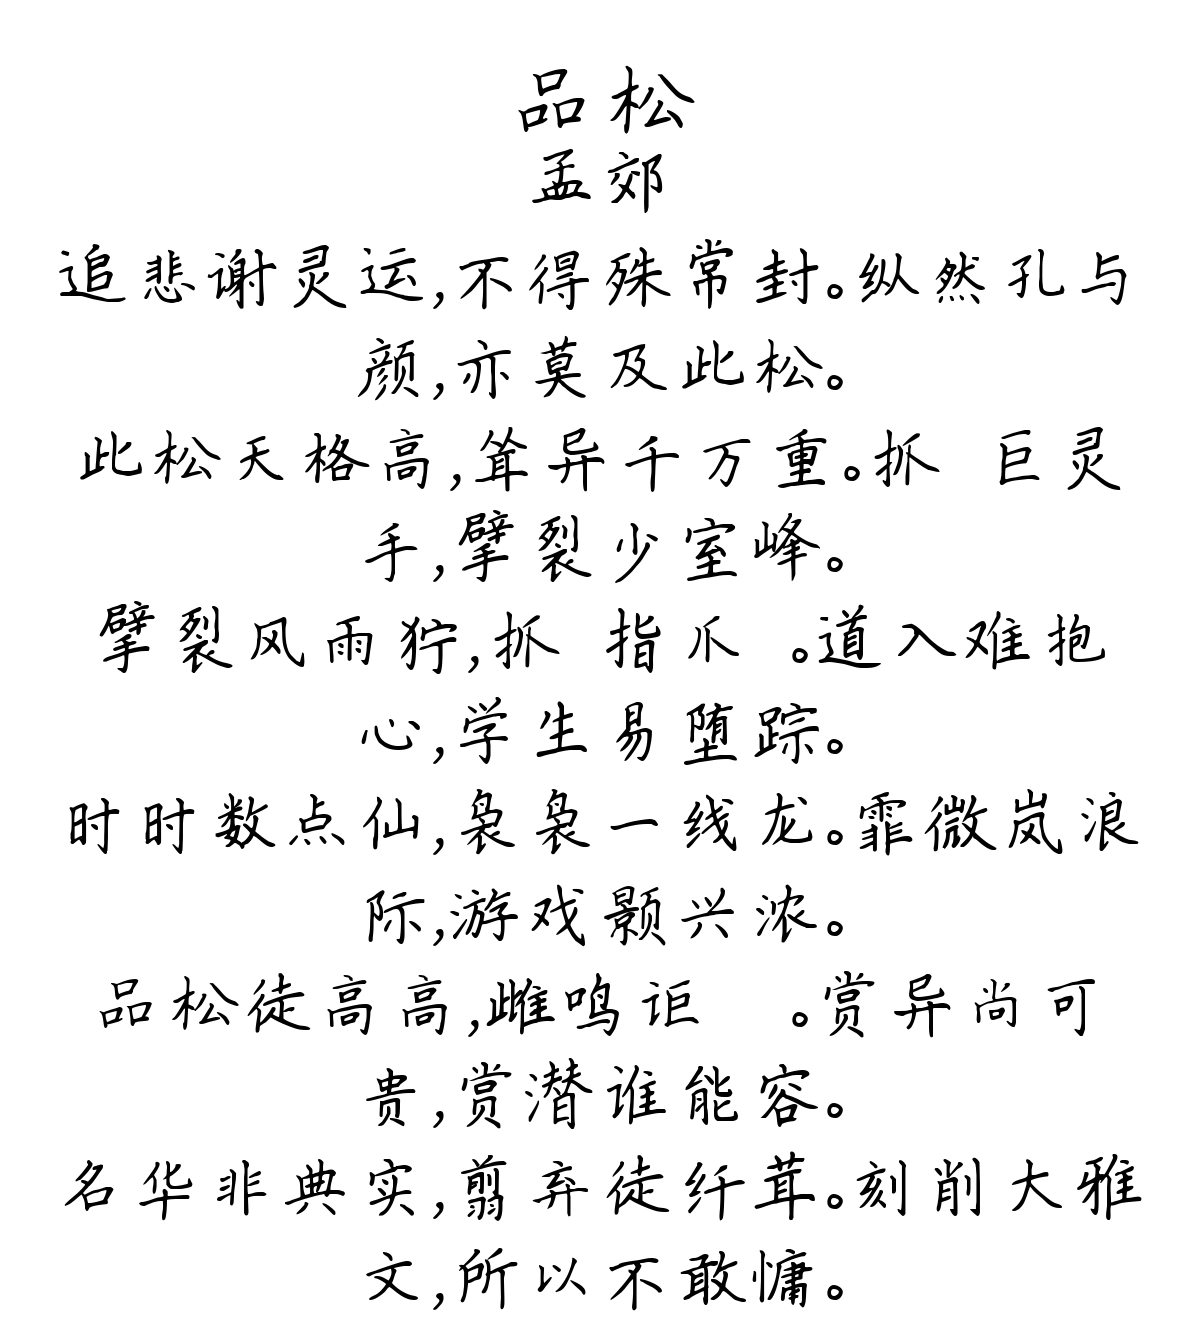 品松
孟郊
追悲谢灵运,不得殊常封。纵然孔与
颜,亦莫及此松。
此松天格高,耸异千万重。抓 巨灵
手,擘裂少室峰。
擘裂风雨狞,抓 指爪 。道入难抱
心,学生易堕踪。
时时数点仙,袅袅一线龙。霏微岚浪
际,游戏颢兴浓。
品松徒高高,雌鸣讵 。赏异尚可
贵,赏潜谁能容。
名华非典实,翦弃徒纤茸。刻削大雅
文,所以不敢慵。